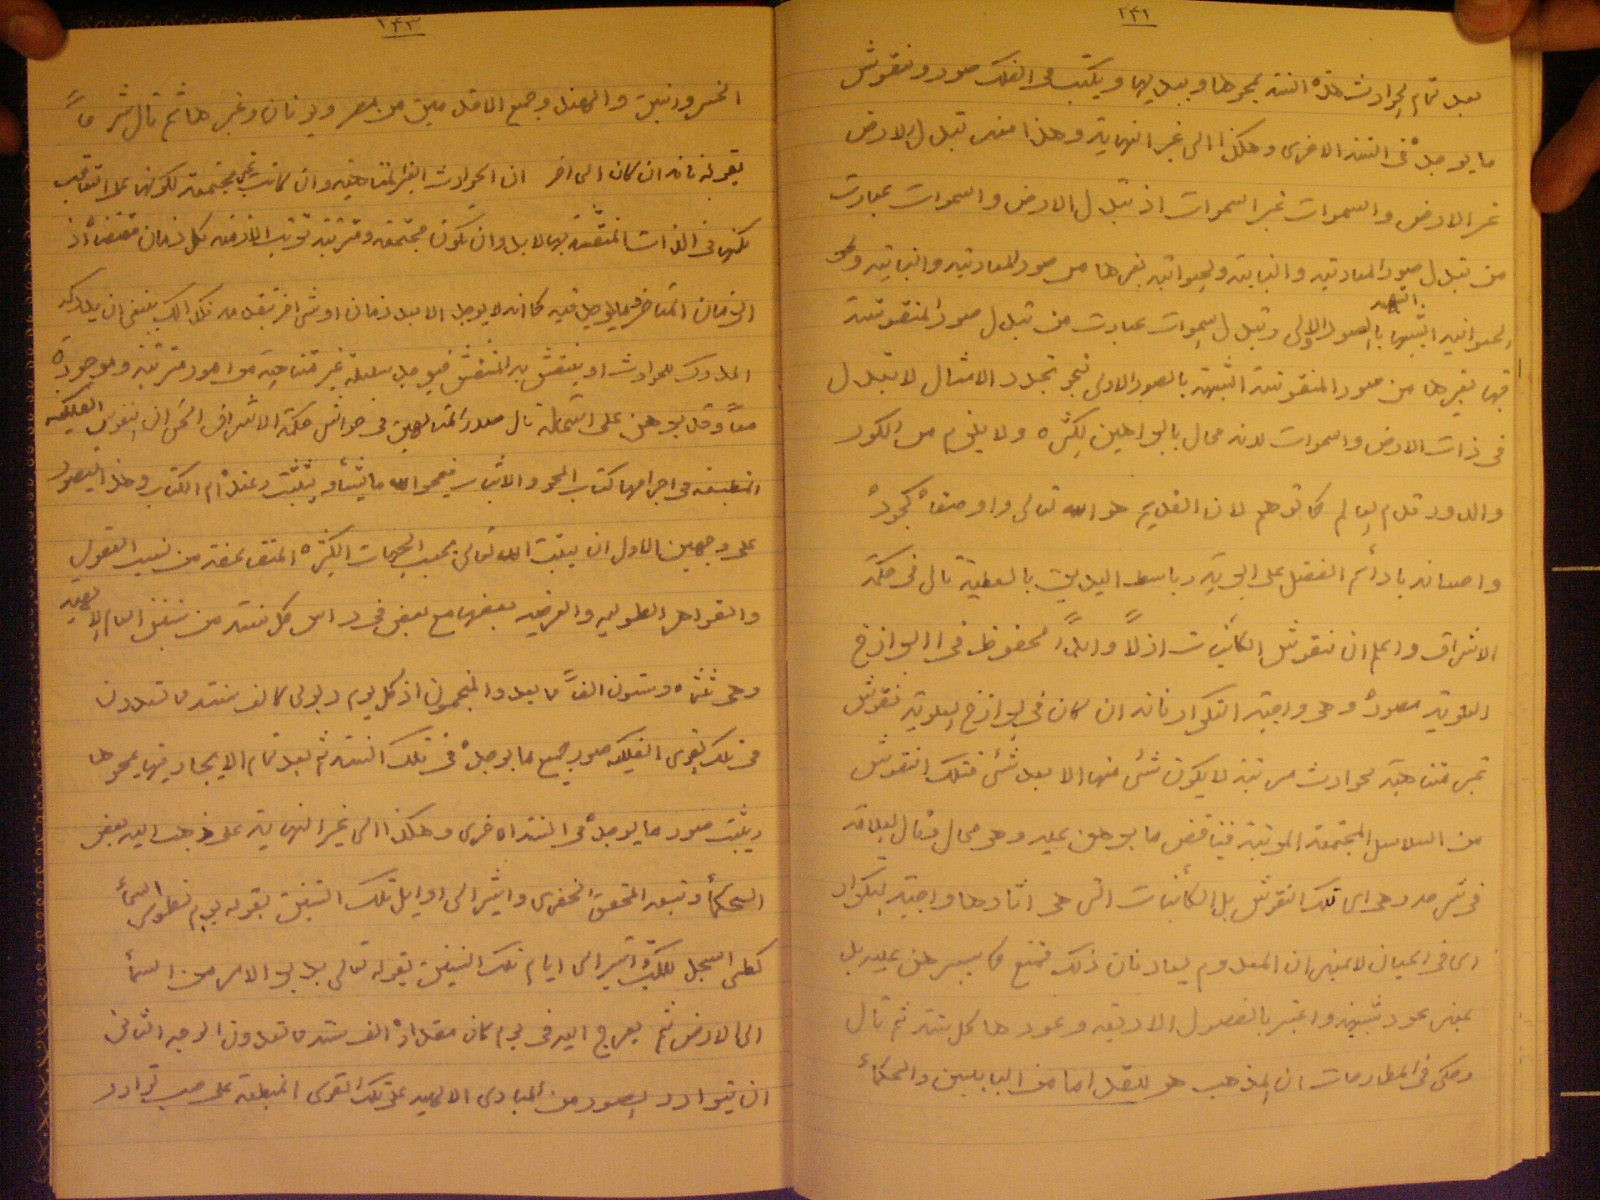 ۱۴۱
بعد تمام الحوادث هذه السنة يمحوها ويبديها ويكتب فى الفلك صور ونقوش
ما يوجد فى السنة الاخرى وهكذا الى غير النهاية وهذا معنى تبدل الارض
غير الارض والسموات غير السموات اذ تبدل الارض والسموات عبارت
من تبدل صور المعادنية والنباتية والحيوانية بغيرها من صور المعادنية والنباتية و
الحيوانية الشبيهة بالصور الاولى وتبدل السموات عبارت من تبدل صور المنقوشة
فيها بغيرها من صور المنقوشة الشبيهة بالصور الاولى بنحو تجدد الامثال لا تبدل
فى ذات الارض والسموات لانه محال بالبراهين الكثيرة ولا يلزم من الكور
والدور قدم العالم كما توهم لان القديم هو الله تعالى واوصفاه كجوده
واحسانه يا دائم الفضل على البرية وباسط اليدين بالعطية قال فى حكمة
الاشراق واعلم ان نقوش الكائنات ازلاً وابداً محفوظ فى البرازخ
العلوية مصورة وهى واجبة التكرار فانه ان كان فى البرازخ العلوية نقوش
غير متناهية لحوادث مرتبة لا يكون شئ منها الا بعد شئ فتلك النقوش
من السلاسل المجتمعة المرتبة فيناقض ما برهن عليه وهو محال قال العلامة
فى شرحه وهى اى تلك النقوش بل الكائنات التى هى اثارها واجبة التكرار
اى فى الاعيان لا بمعنى ان المعدوم يعاد فان ذلك ممتنع كما سيبرهن عليه بل
بمعنى عود شبيهه واعتبر بالفصول الاربعة وعودها كل سنة ثم قال
وحكى فى المطارحات ان المذهب هو للقدما من البابليين والحكماء
۱۴۲
الخسروانيين والهند وجميع الاقدمين من مصر ويونان وغيرها ثم قال شرحاً
بقوله فانه ان كان الى اخر ان الحوادث الغير المتناهية وان كانت غير مجتمعة لكونها على التعاقب
لكنها فى الذات المنتقشة بها لا بد وان يكون مجتمعة ومترتبة ترتيب الازمنة لكل زمان مقتضاه اذ
الزمان المتاخر فيما يوجد فيه كما انه لا يوجد الا بعد زمان اوشئ اخر يتقدمه فكذالك ينبغى ان يدركه
المدرك للحوادث او ينتقش به المنتقش فيوجد سلسلة غير متناهية من امور مترتبة وموجودة
معاً وقد برهن على استحالته قال صدر المتالهين فى حواشى حكمة الاشراق الحق ان النفوس الفلكية
المنطبعة فى اجرامها كتاب المحو والاثبات فيمحوا الله ما يشاء ويثبت وعنده ام الكتاب وهذا يتصور
على وجهين الاول ان يثبت الله تعالى بحسب الجهات الكثيرة المتضاعفة من نسب العقول
والقواهر الطولية والعرضية بعضها مع بعض فى راس كل سنة من سنين العام الالهية
وهى ثلثمأة وستون الفاً ما يعد والمنجمون اذ كل يوم ربوبى كالف سنة ما تعدون
فى تلك القوى الفلكية صور جميع ما يوجد فى تلك السنة ثم بعد تمام الايجاد فيها يمحوها
ويثبت صور ما يوجد فى السنة الاخرى وهكذا الى غير النهاية على ذهب اليه بعض
الحكماء وتبعه المحقق الخفرى واشير الى اوايل تلك السنين بقوله يوم نطوى السماء
كطى السجل للكتب اشير الى ايام تلك السنين بقوله تعالى يدبر الامر من السماء
الى الارض ثم يعرج اليه فى يوم كان مقداره الف سنة ما تعدون الوجه الثانى
ان يتوارد الصور من المبادى الالهية على تلك القوى المنطبعة على حسب توارد